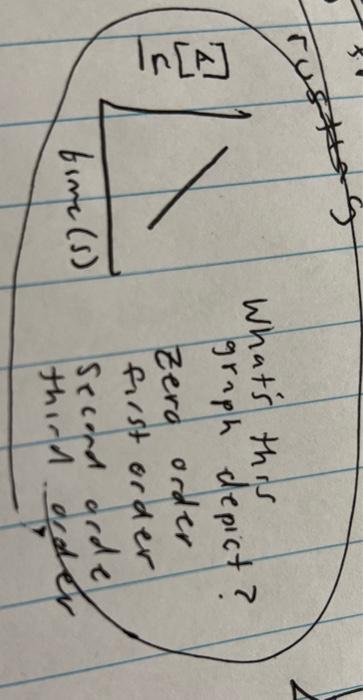 [A]
ln
time(s)
What's this
graph depict?
Zero order
first order
Second orde
third order